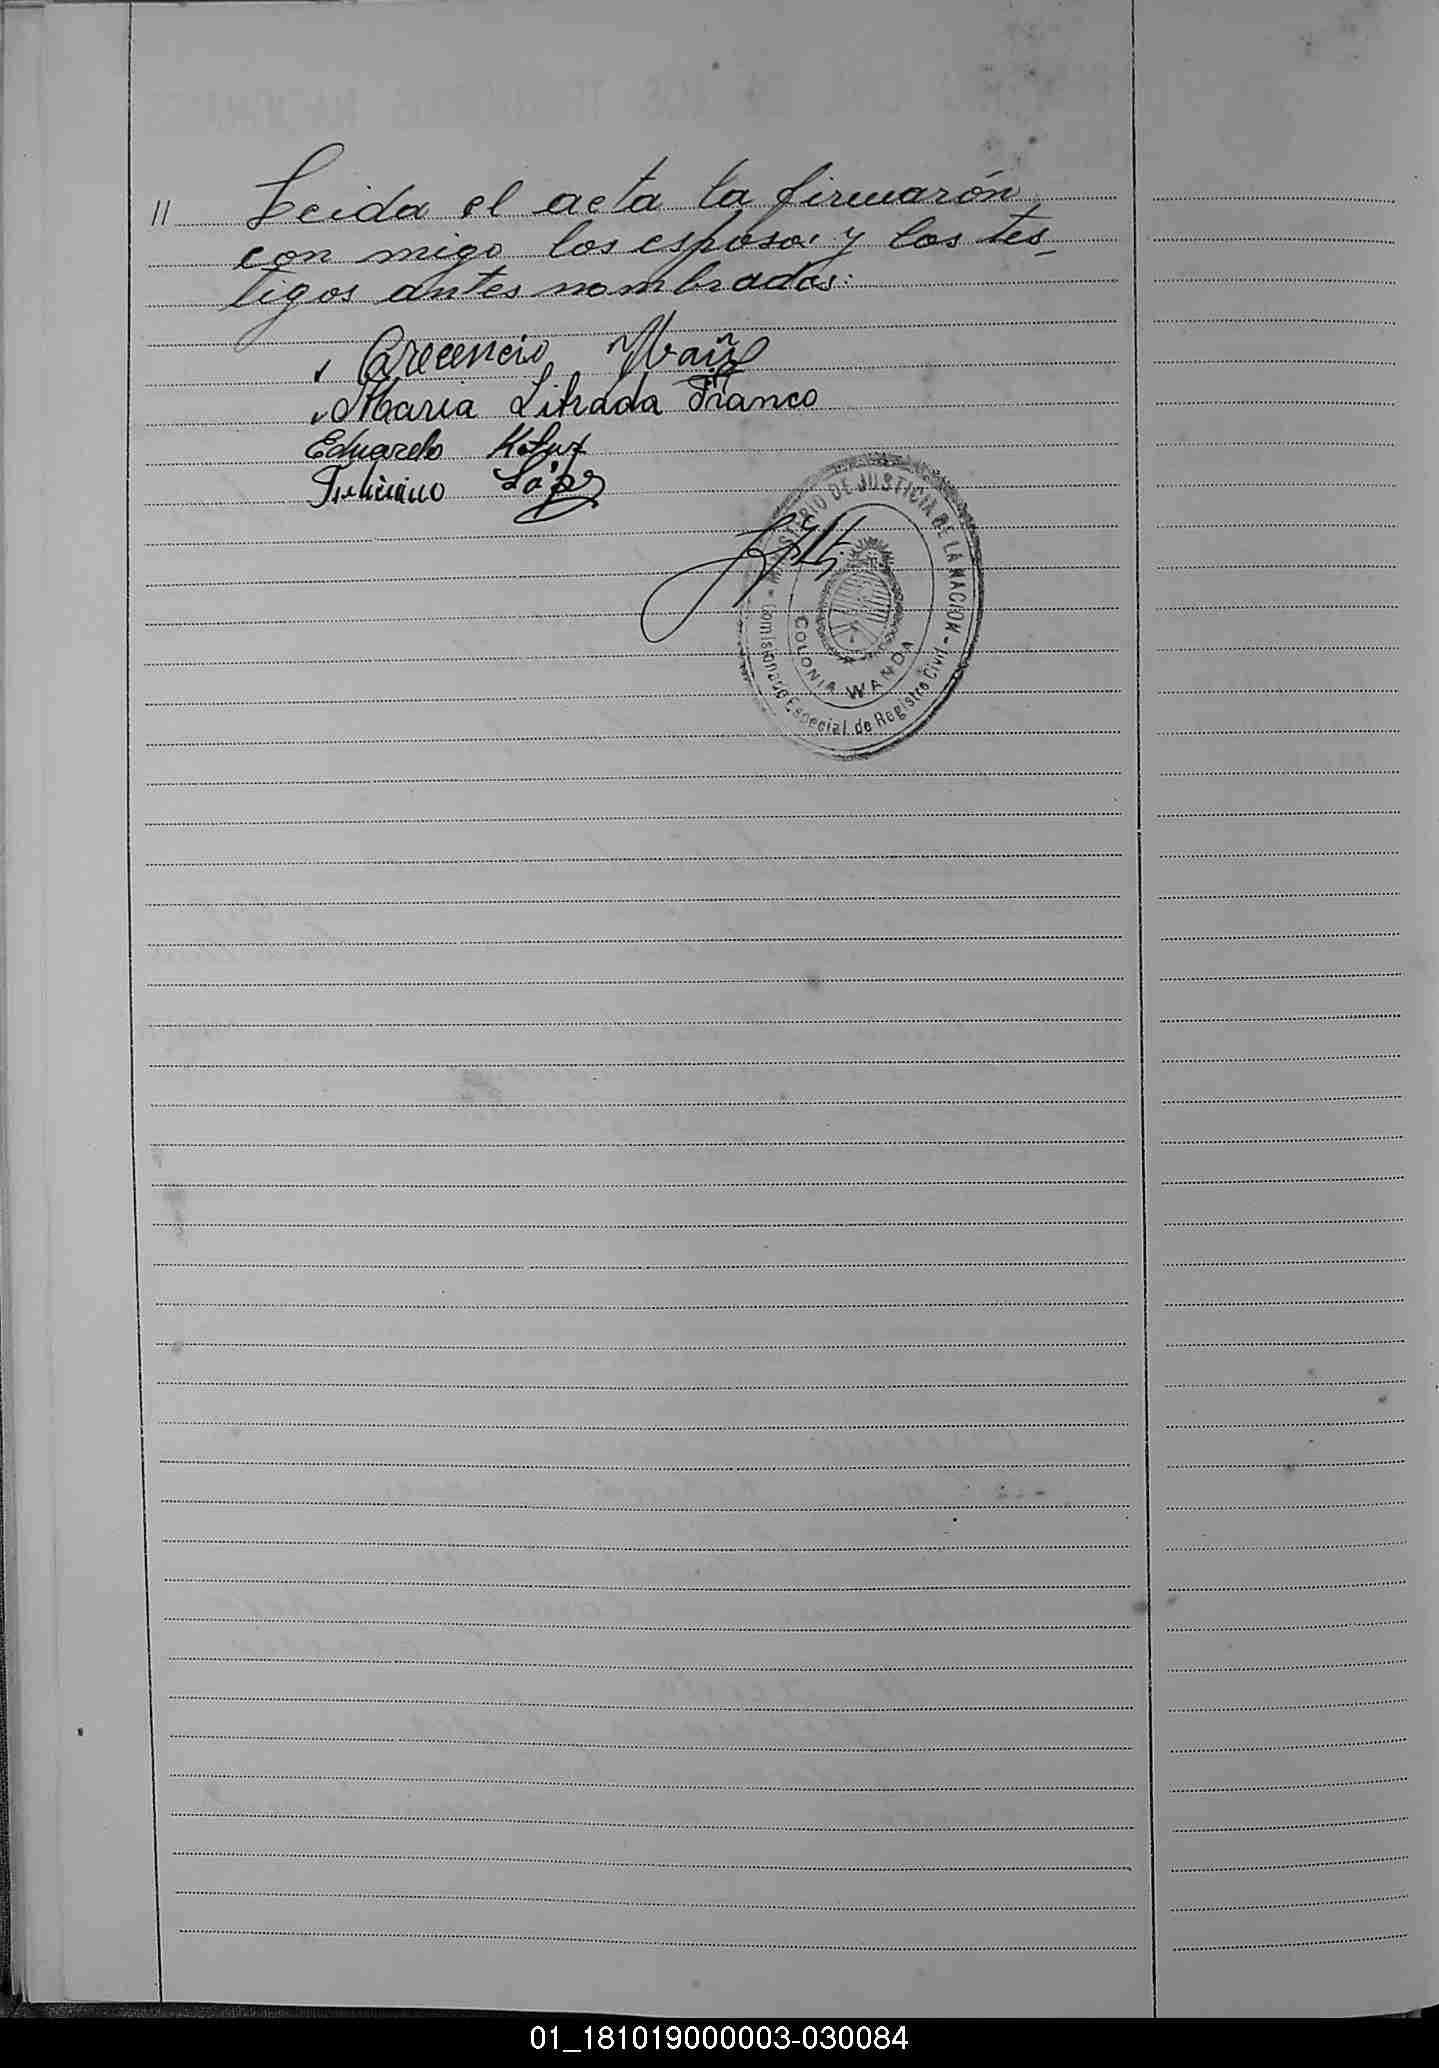 11 Leida el acta la firmarón
con migo los esposos y los tes-
tigos antes nombrados:
Crecencio
Maria Librada Franco
Eduardo
Feliciano López
MINISTERIO DE JUSTICIA DE LA NACION
COLONIA WANDA
Comisionado Especial de Registro Civil
01_181019000003-030084